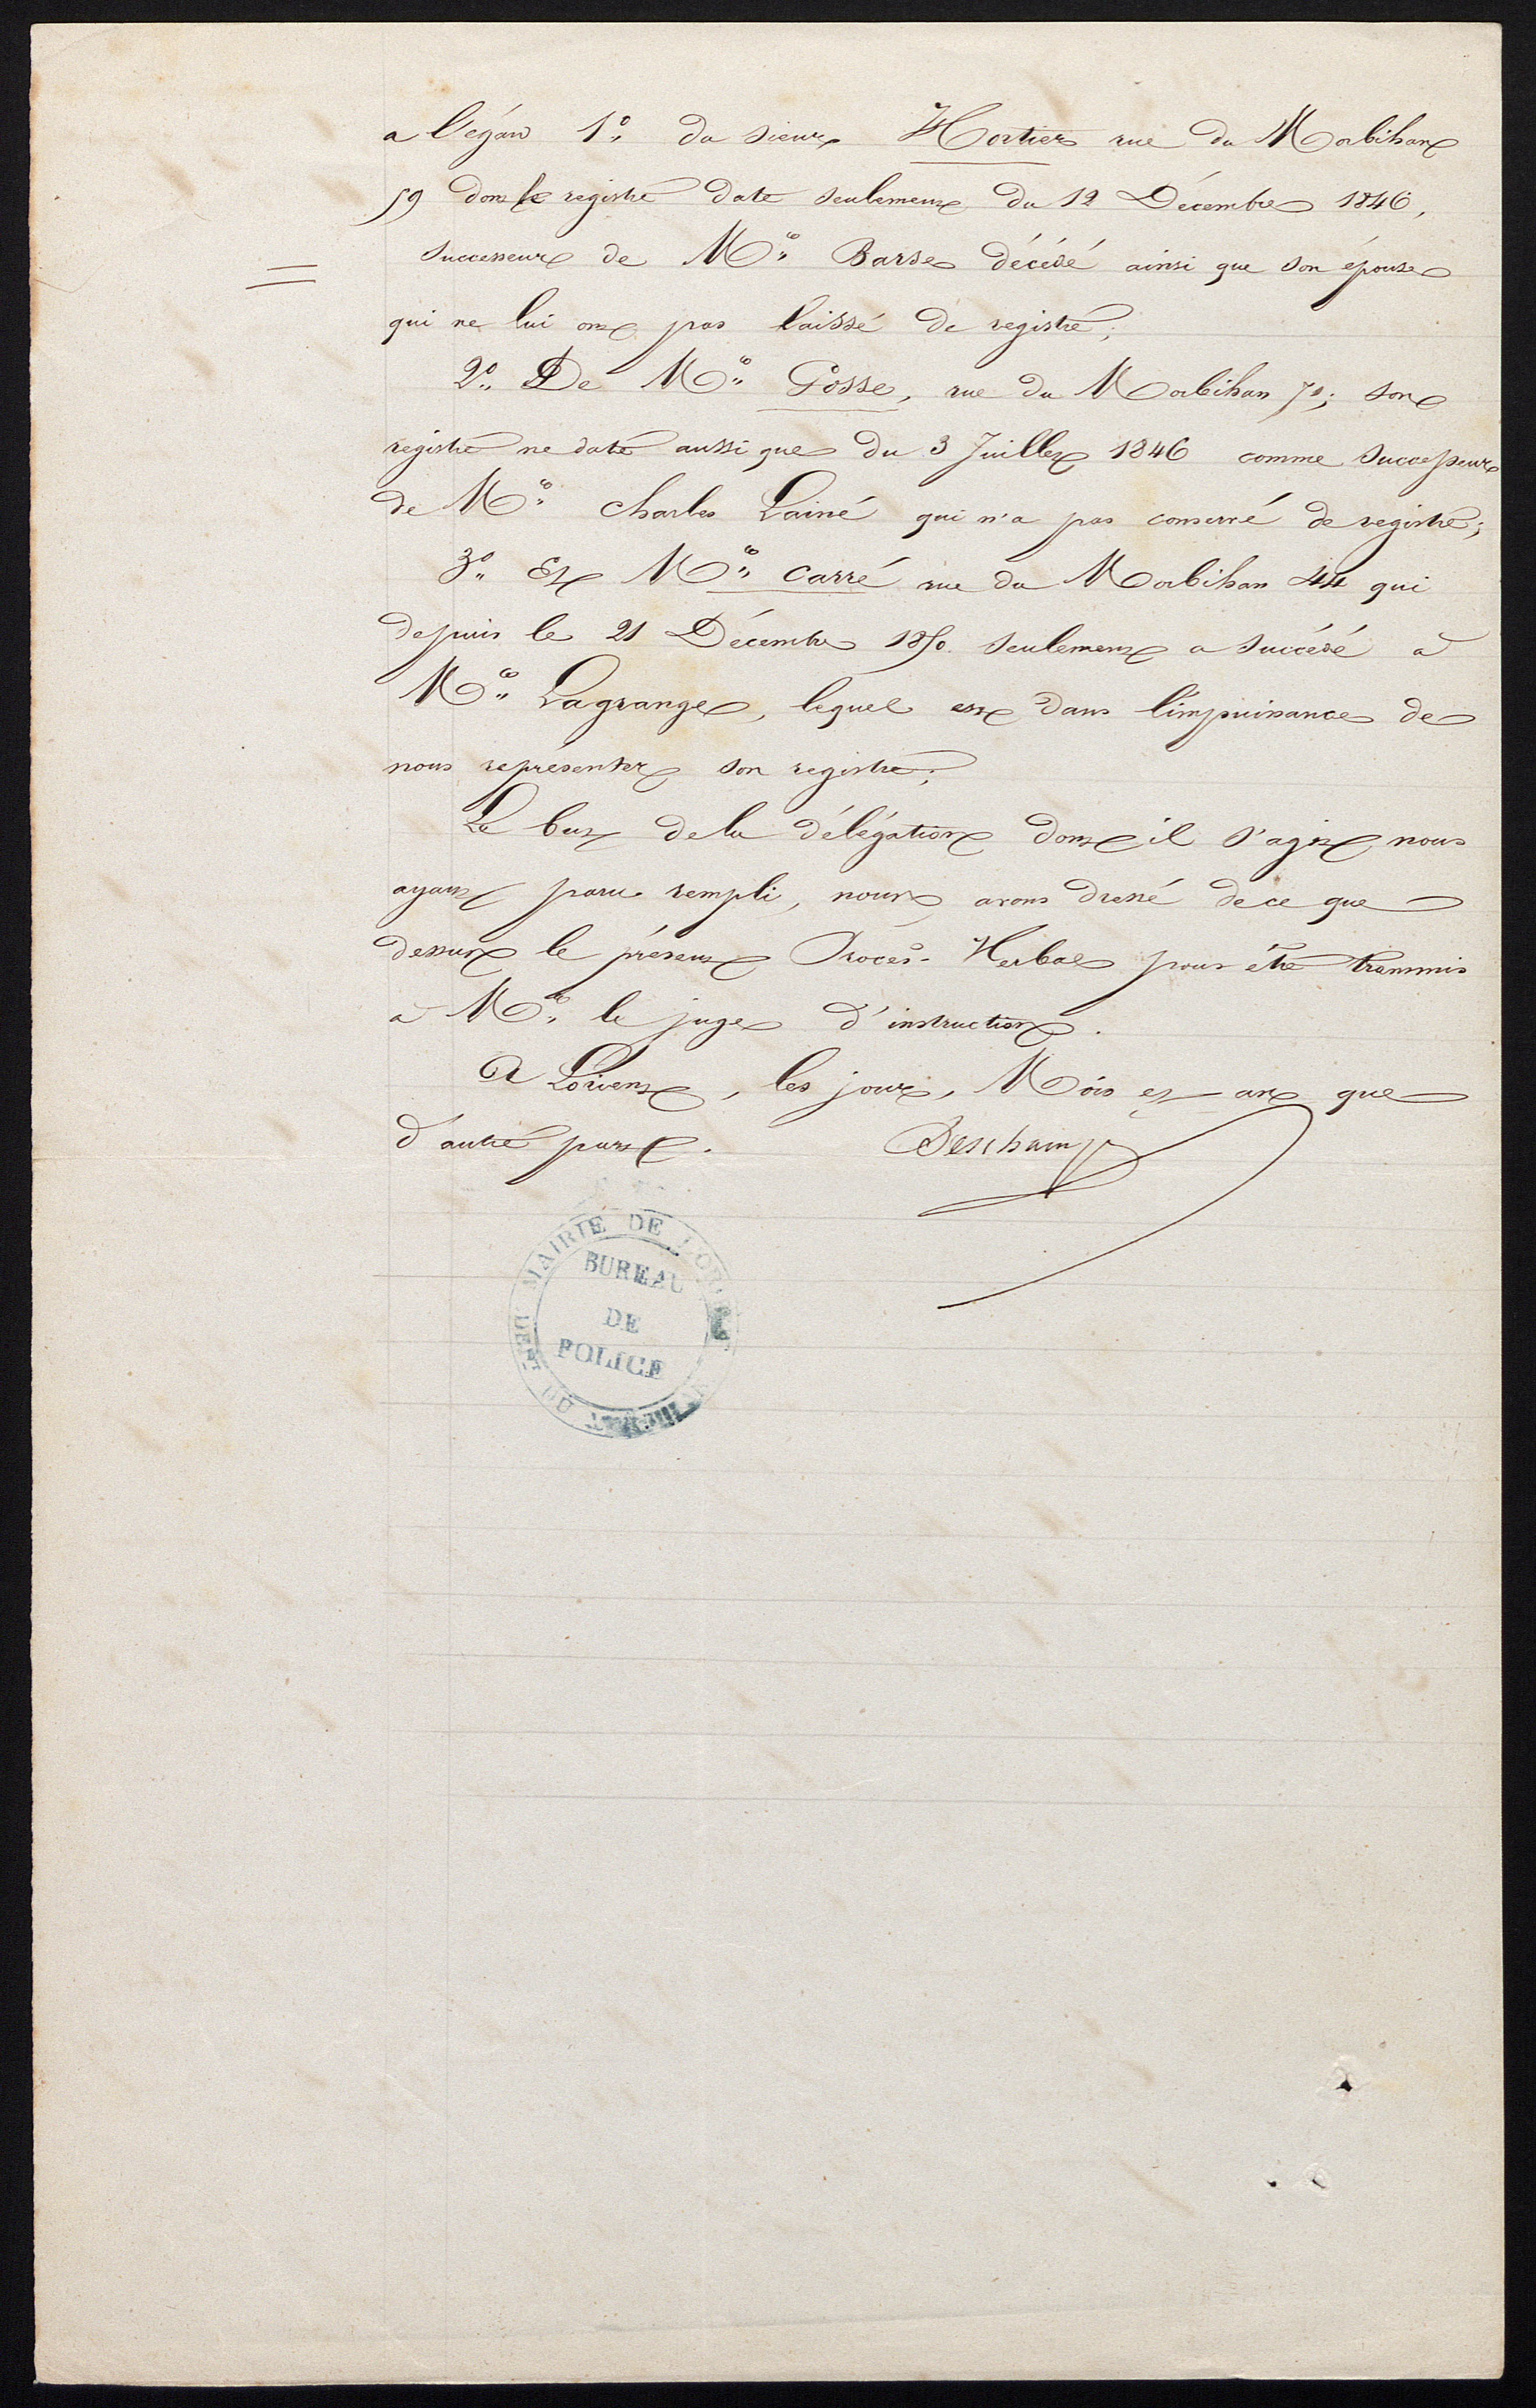 a l'égard 1° du sieur Hortier rue du Morbihan
59 dont le registre date seulement du 12 Décembre 1846,
successeur de Mr Barse décédé ainsi que son épouse
qui ne lui ont pas laissé de registre;
2° De Mr Gosse, rue du Morbihan 70; son
registre ne date aussi que du 3 Juillet 1846 comme successeur
de Mr Charles Lainé qui n'a pas conservé de registre;
3° Et Mr Carré rue du Morbihan 44 qui
depuis le 21 Décembre 1850 seulement a succédé à
Mr Lagrange, lequel est dans l'impuissance de
nous représenter son registre;
Le but de la délégation dont il s'agit nous
ayant paru rempli, nous avons dressé de ce que
dessus le présent Procès-Verbal pour être transmis
à Mr le juge d'instruction.
A Lorient, les jour, Mois et an que
d'autre part. Deschamps
MAIRIE DE LORIENT
BUREAU
DE
POLICE